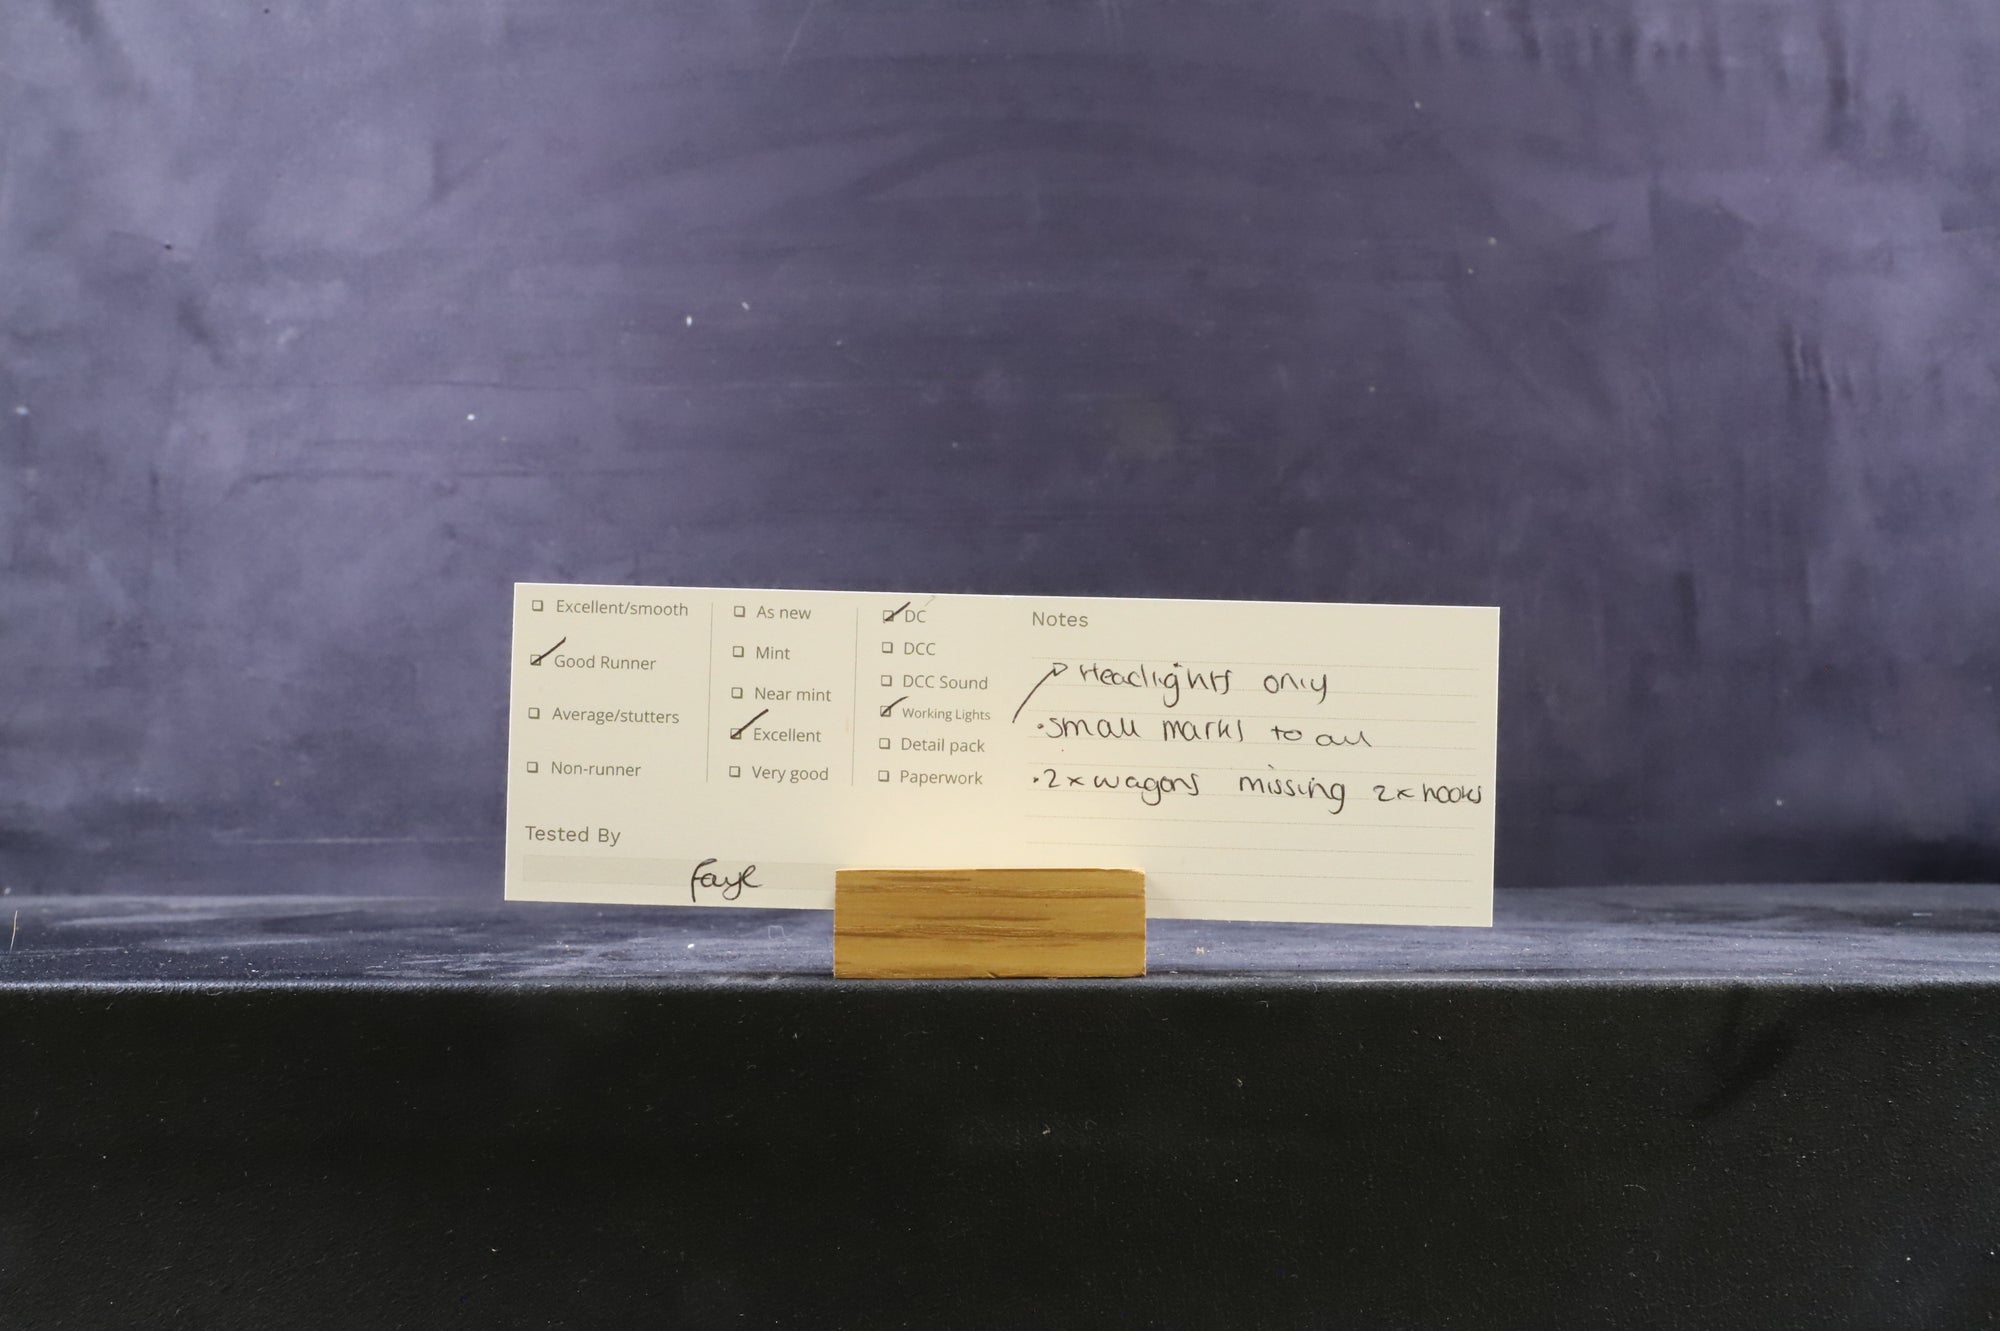 Excellent/smooth
Good Runner
Average/stutters
Non-runner
As new
Mint
Near mint
Excellent
Very good
DC
DCC
DCC Sound
Working Lights
Detail pack
Paperwork
Notes
Headlights only
• small marks to all
• 2x wagons missing 2x hooks
Tested By
Faye